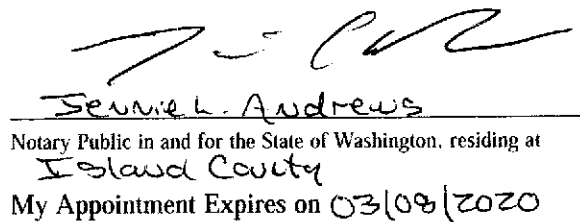 Jennie L. Andrews
Notary Public in and for the State of Washington, residing at
Island County
My Appointment Expires on 03/08/2020